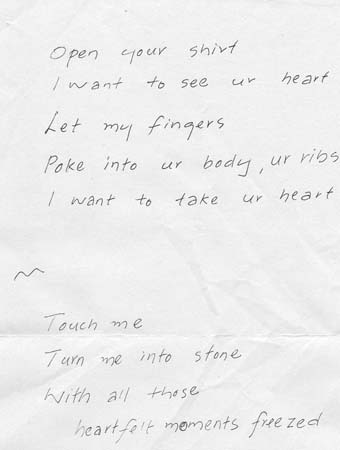 Open your shirt
I want to see ur heart
Let my fingers
Poke into ur body, ur ribs
I want to take ur heart
~
Touch me
Turn me into stone
With all those
heartfelt moments freezed